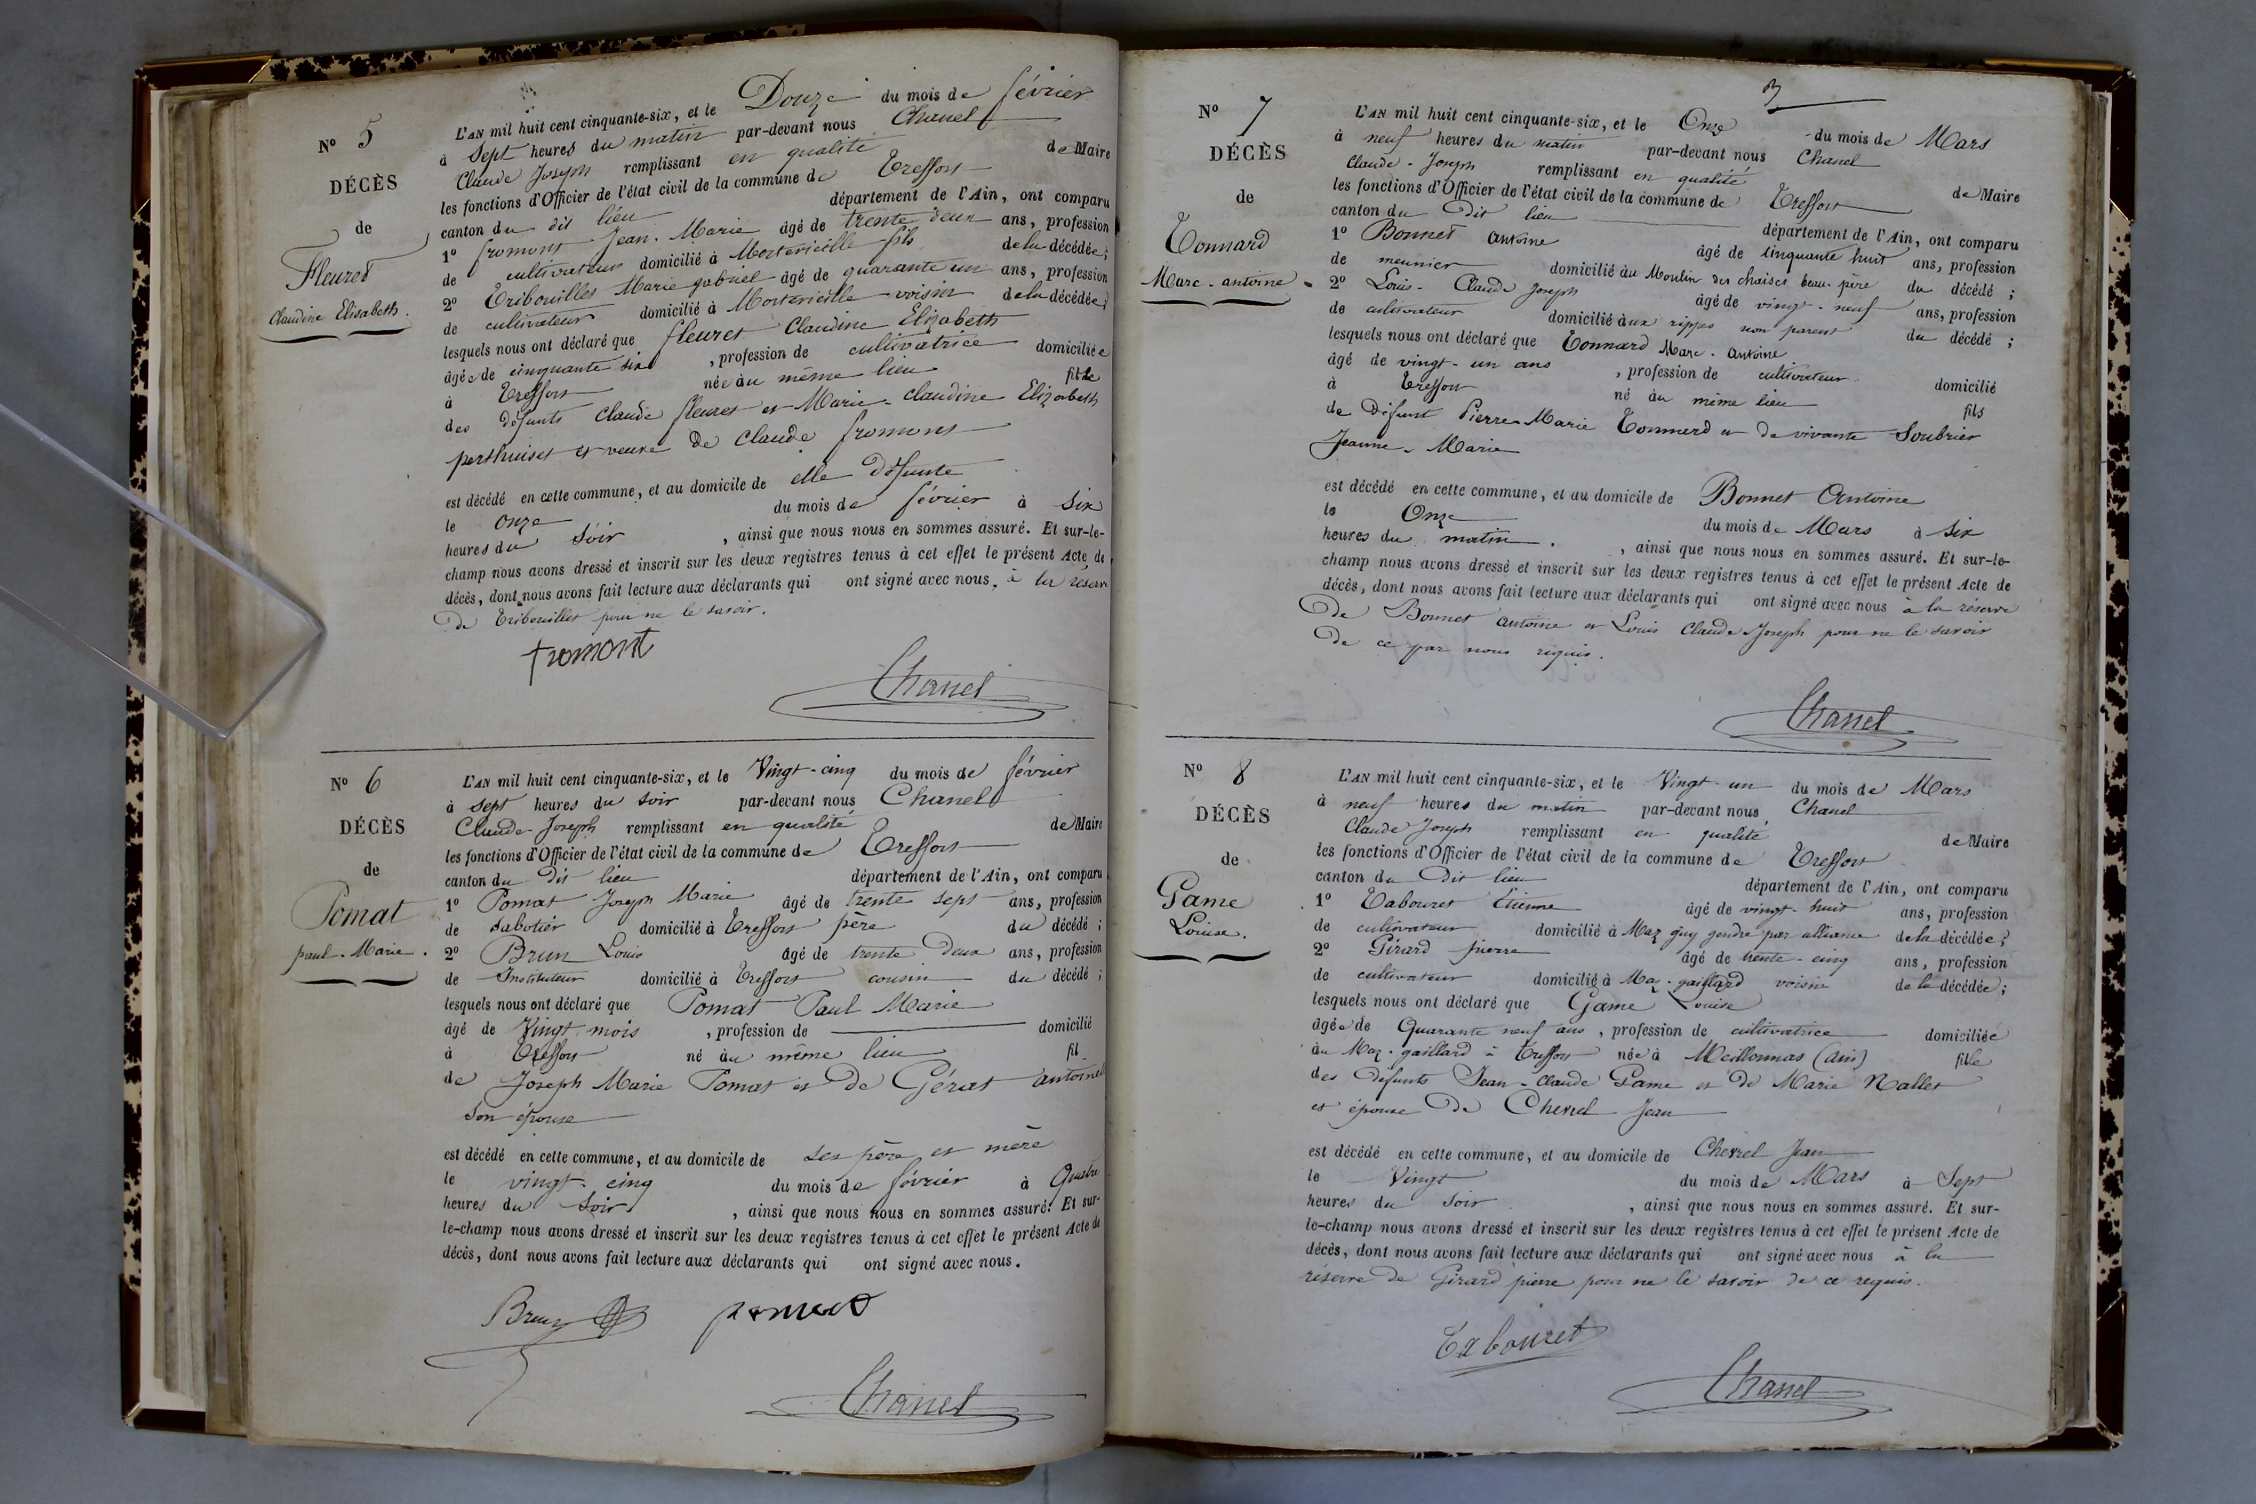 N° 5
DÉCÈS
de
Fleuret
Claudine Elisabeth.
L'AN mil huit cent cinquante-six, et le Douze du mois de février
à sept heures du matin par-devant nous Chanel
Claude Joseph remplissant en qualité de Maire
les fonctions d'Officier de l'état civil de la commune de Treffort
canton du dit lieu département de l'Ain, ont comparu
1° fromont Jean-Marie âgé de trente deux ans, profession
de cultivateur domicilié à Montevieille fils de la décédée;
2° Tribouillet Marie gabriel âgé de quarante un ans, profession
de cultivateur domicilié à voisin de la décédée;
lesquels nous ont déclaré que fleuret Claudine Elizabeth
âgée de cinquante six , profession de cultivatrice domiciliée
à Treffort née au même lieu fille
des défunts Claude fleuret et Marie-Claudine Elizabeth
perthuiset et veuve de Claude fromont
est décédé en cette commune, et au domicile de elle défunte
le onze du mois de février à six
heures du soir , ainsi que nous nous en sommes assuré. Et sur-le-
champ nous avons dressé et inscrit sur les deux registres tenus à cet effet le présent Acte de
décès, dont nous avons fait lecture aux déclarants qui ont signé avec nous, à la réserve
de Tribouillet pour ne le savoir.
fromont
Chanel
N° 6
DÉCÈS
de
Pomat
paul-Marie.
L'AN mil huit cent cinquante-six, et le Vingt-cinq du mois de février
à sept heures du soir par-devant nous Chanel
Claude-Joseph remplissant en qualité de Maire
les fonctions d'Officier de l'état civil de la commune de Treffort
canton du dit lieu département de l'Ain, ont comparu
1° Pomat Joseph Marie âgé de trente sept ans, profession
de sabotier domicilié à Treffort père du décédé;
2° Brun Louis âgé de trente deux ans, profession
de Instituteur domicilié à Treffort cousin du décédé;
lesquels nous ont déclaré que Pomat Paul Marie
âgé de Vingt mois , profession de domicilié
à Treffort né au même lieu fil
de Joseph Marie Pomat et de Gérat antoinette
son épouse
est décédé en cette commune, et au domicile de ses père et mère
le vingt-cinq du mois de février à Quatre
heures du soir , ainsi que nous nous en sommes assuré. Et sur-
le-champ nous avons dressé et inscrit sur les deux registres tenus à cet effet le présent Acte de
décès, dont nous avons fait lecture aux déclarants qui ont signé avec nous.
Brun
Chanel
3
N° 7
DÉCÈS
de
Tonnard
Marc-antoine
L'AN mil huit cent cinquante-six, et le Onze du mois de Mars
à neuf heures du matin par-devant nous Chanel
Claude-Joseph remplissant en qualité de Maire
les fonctions d'Officier de l'état civil de la commune de Treffort
canton du Dit lieu département de l'Ain, ont comparu
1° Bonnet antoine âgé de cinquante huit ans, profession
de meunier domicilié au Moulin des beau-père du décédé;
2° Louis-Claude Joseph âgé de vingt-neuf ans, profession
de cultivateur domicilié aux rippes non parent du décédé;
lesquels nous ont déclaré que Tonnard Marc-antoine
âgé de vingt-un ans , profession de cultivateur domicilié
à Treffort né au même lieu fils
de Défunt Pierre-Marie Tonnerd et de vivante Soubrier
Jeanne-Marie
est décédé en cette commune, et au domicile de Bonnet Antoine
le Onze du mois de Mars à six
heures du matin. , ainsi que nous nous en sommes assuré. Et sur-le-
champ nous avons dressé et inscrit sur les deux registres tenus à cet effet le présent Acte de
décès, dont nous avons fait lecture aux déclarants qui ont signé avec nous à la réserve
de Bonnet antoine et Louis Claude Joseph pour ne le savoir
de ce par nous requis.
Chanel
N° 8
DÉCÈS
de
Game
Louise.
L'AN mil huit cent cinquante-six, et le Vingt-un du mois de Mars
à neuf heures du matin par-devant nous Chanel
Claude Joseph remplissant en qualité de Maire
les fonctions d'Officier de l'état civil de la commune de Treffort
canton du Dit lieu département de l'Ain, ont comparu
1° Tabouret Etienne âgé de vingt-huit ans, profession
de cultivateur domicilié à Maz guy gendre par alliance de la décédée;
2° Girard pierre âgé de trente-cinq ans, profession
de cultivateur domicilié à Maz-gaillard voisin de la décédée;
lesquels nous ont déclaré que Game Louise
âgée de Quarante neuf ans , profession de cultivatrice domiciliée
au Maz-gaillard à Treffort née à Meillonnas (Ain) fille
des défunts Jean-Claude Game et de Marie Nallet
et épouse de Chevrel Jean
est décédé en cette commune, et au domicile de Chevrel Jean
le Vingt du mois de Mars à Sept
heures du soir , ainsi que nous nous en sommes assuré. Et sur-
le-champ nous avons dressé et inscrit sur les deux registres tenus à cet effet le présent Acte de
décès, dont nous avons fait lecture aux déclarants qui ont signé avec nous à la
réserve de Girard pierre pour ne le savoir de ce requis.
Tabouret
Chanel